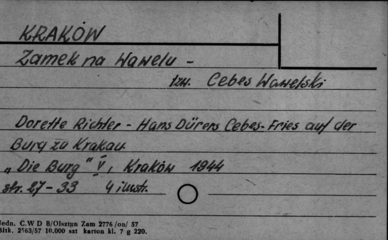 KRAKÓW
Zamek na Wawelu -
tzw. Cebes Wawelski
Dorette Richter - Hans Dürers Cebes-Fries auf der
Burg zu Krakau
„Die Burg" V, Kraków 1944
str. 27-33 4 ilustr.
Jedn. C.W D 8/Olsztyn Zam 2776/on/ 57
2163/57 10.000 szt karton kl. 7 g 220.